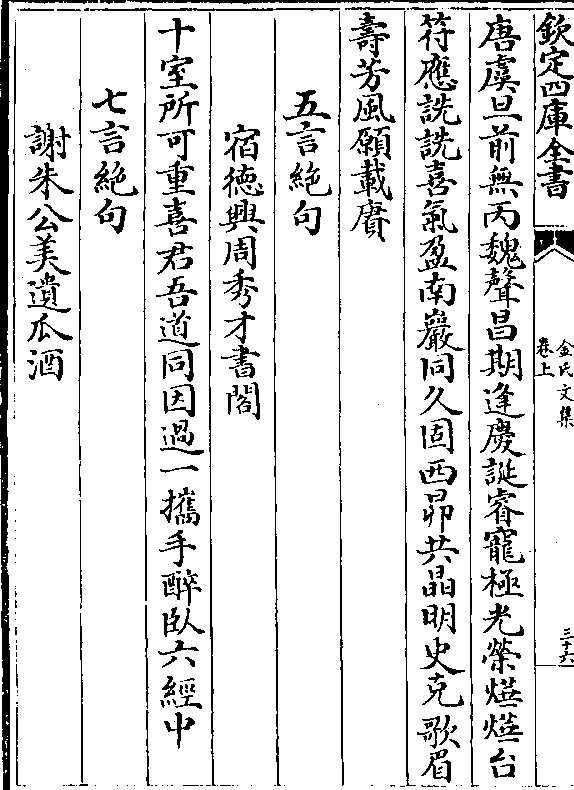 欽定四庫全書
金氏文集
卷上
三十六
唐虞旦前無丙魏聲昌期逢慶誕睿寵極光榮爗爗台
符應詵詵喜氣盈南巖同久固西昴共晶明史克歌眉
壽芳風願載賡
五言絶句
宿德興周秀才書閣
十室所可重喜君吾道同因過一攜手醉臥六經中
七言絶句
謝朱公美遺瓜酒